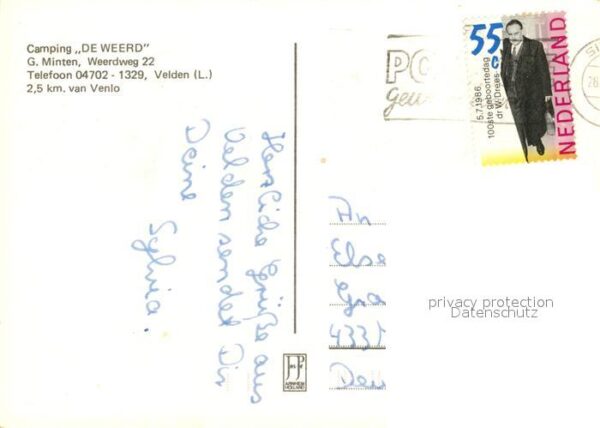 Camping „DE WEERD"
G. Minten, Weerdweg 22
Telefoon 04702 - 1329, Velden (L.)
2,5 km. van Venlo
Herzliche Grüße aus
Velden sendet Dir
Deine
Sylvia.
55
c
5.7.1986
100ste geboortedag
dr W. Drees
NEDERLAND
An
4335
privacy protection
Datenschutz
ARNHEM
HOLLAND